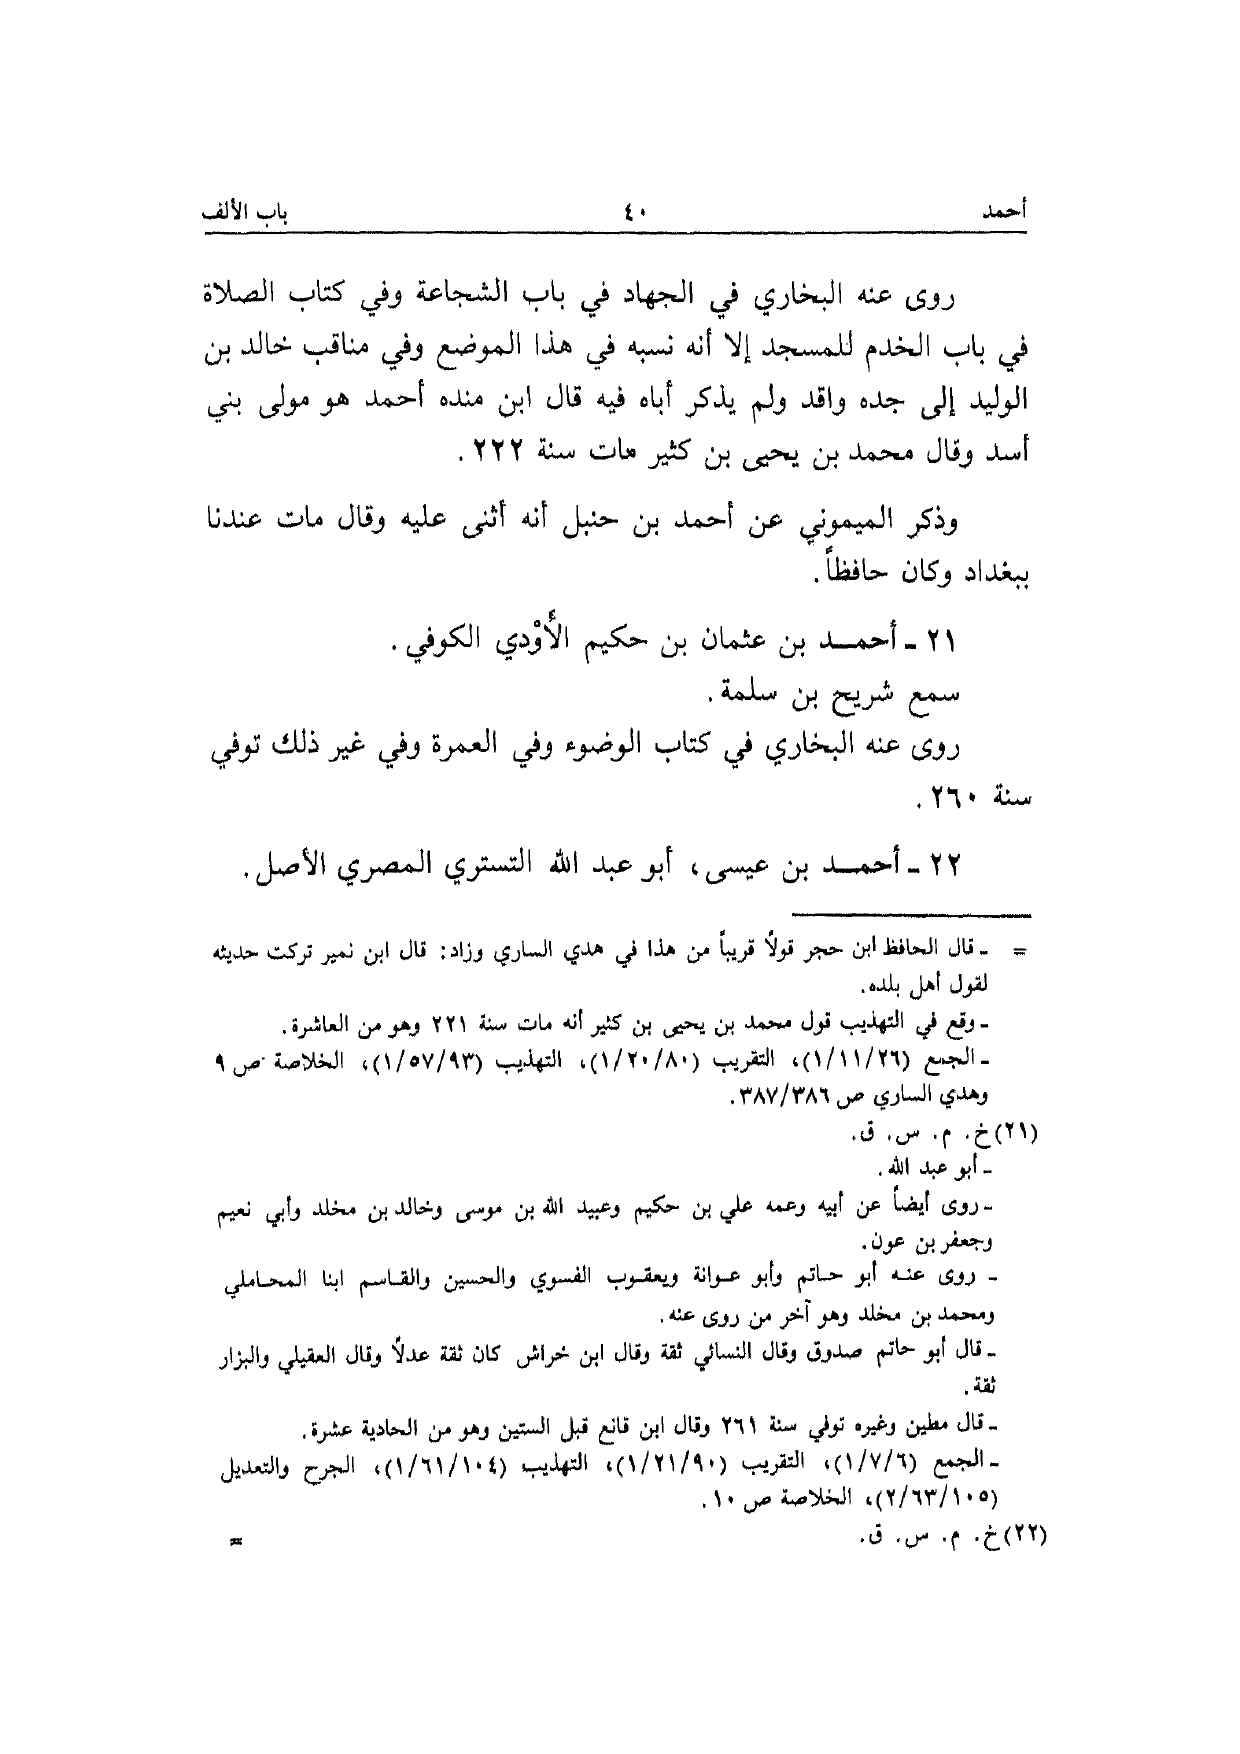 أحمد ٤٠ باب الألف
روى عنه البخاري في الجهاد في باب الشجاعة وفي كتاب الصلاة
في باب الخدم للمسجد إلا أنه نسبه في هذا الموضع وفي مناقب خالد بن
الوليد إلى جده واقد ولم يذكر أباه فيه قال ابن منده أحمد هو مولى بني
أسد وقال محمد بن يحيى بن كثير مات سنة ٢٢٢ .
وذكر الميموني عن أحمد بن حنبل أنه أثنى عليه وقال مات عندنا
ببغداد وكان حافظاً.
٢١ ـ أحمـــد بن عثمان بن حكيم الأَوْدي الكوفي .
سمع شريح بن سلمة .
روى عنه البخاري في كتاب الوضوء وفي العمرة وفي غير ذلك توفي
سنة ٢٦٠ .
٢٢ ـ أحمـــد بن عيسى، أبو عبد الله التستري المصري الأصل .
= ـ قال الحافظ ابن حجر قولاً قريباً من هذا في هدي الساري وزاد: قال ابن نمير تركت حديثه
لقول أهل بلده.
ـ وقع في التهذيب قول محمد بن يحيى بن كثير أنه مات سنة ٢٢١ وهو من العاشرة.
ـ الجمع (١/١١/٢٦)، التقريب (١/٢٠/٨٠)، التهذيب (١/٥٧/٩٣)، الخلاصة ص ٩
وهدي الساري ص ٣٨٧/٣٨٦.
(٢١) خ. م. س. ق.
ـ أبو عبد الله .
ـ روى أيضاً عن أبيه وعمه علي بن حكيم وعبيد الله بن موسى وخالد بن مخلد وأبي نعيم
وجعفر بن عون.
ـ روى عنه أبو حاتم وأبو عوانة ويعقوب الفسوي والحسين والقاسم ابنا المحاملي
ومحمد بن مخلد وهو آخر من روى عنه.
ـ قال أبو حاتم صدوق وقال النسائي ثقة وقال ابن خراش كان ثقة عدلاً وقال العقيلي والبزار
ثقة .
ـ قال مطين وغيره توفي سنة ٢٦١ وقال ابن قانع قبل الستين وهو من الحادية عشرة.
ـ الجمع (١/٧/٦)، التقريب (١/٢١/٩٠)، التهذيب (١/٦١/١٠٤)، الجرح والتعديل
(٢/٦٣/١٠٥)، الخلاصة ص ١٠.
(٢٢) خ. م. س. ق. =